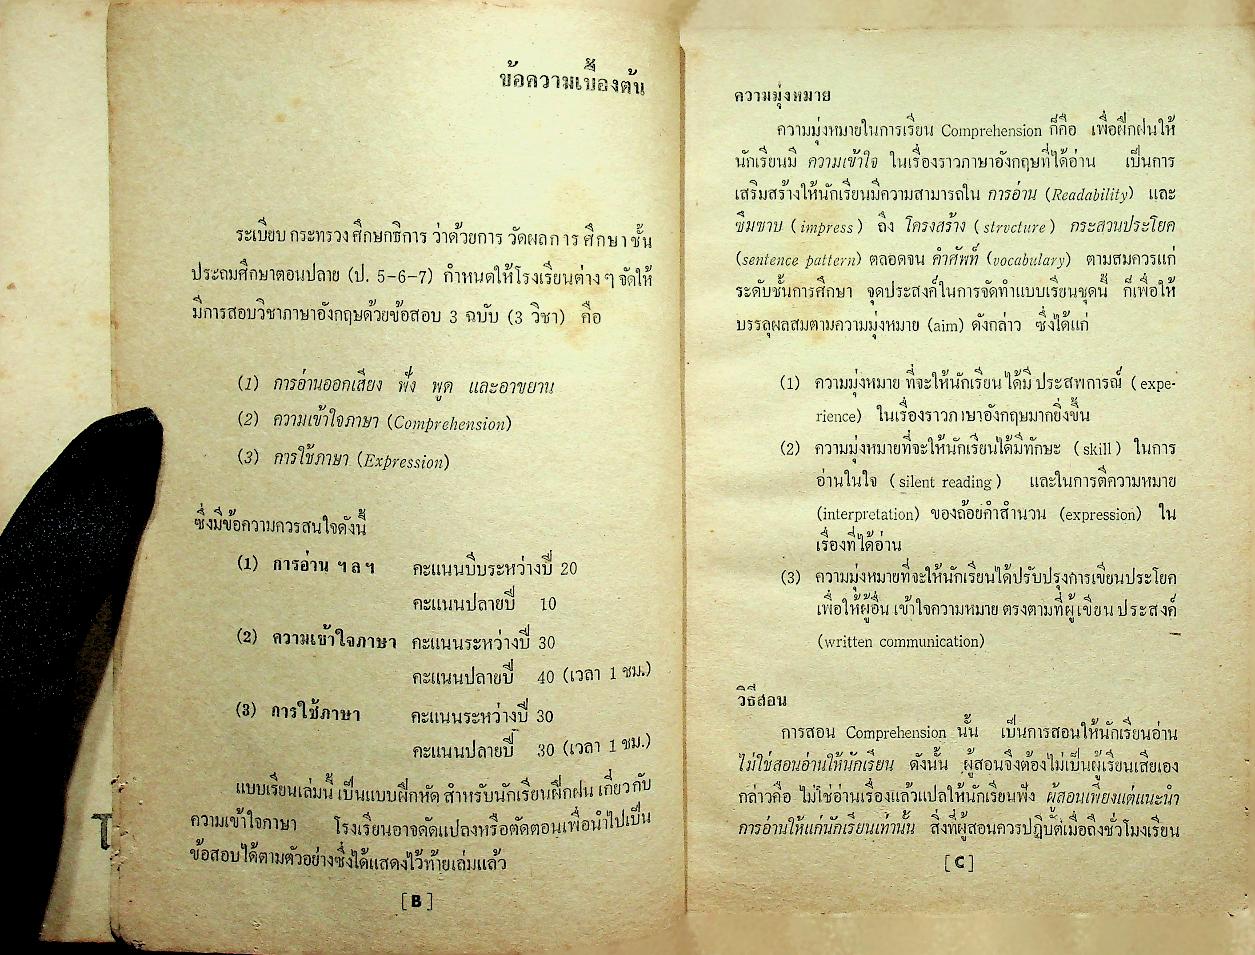 ข้อความเบื้องต้น
ระเบียบ กระทรวง ศึกษาธิการ ว่าด้วยการ วัดผลการ ศึกษา ชั้น
ประถมศึกษาตอนปลาย (ป. 5-6-7) กำหนดให้โรงเรียนต่าง ๆ จัดให้
มีการสอบวิชาภาษาอังกฤษด้วยข้อสอบ 3 ฉบับ (3 วิชา) คือ
(1) การอ่านออกเสียง ฟัง พูด และอาขยาน
(2) ความเข้าใจภาษา (Comprehension)
(3) การใช้ภาษา (Expression)
ซึ่งมีข้อความควรสนใจดังนี้
(1) การอ่าน ฯลฯ คะแนนบีบระหว่างปี 20
คะแนนปลายปี 10
(2) ความเข้าใจภาษา คะแนนระหว่างปี 30
คะแนนปลายปี 40 (เวลา 1 ชม.)
(3) การใช้ภาษา คะแนนระหว่างปี 30
คะแนนปลายปี 30 (เวลา 1 ชม.)
แบบเรียนเล่มนี้ เป็นแบบฝึกหัด สำหรับนักเรียนฝึกฝน เกี่ยวกับ
ความเข้าใจภาษา โรงเรียนอาจดัดแปลงหรือตัดตอนเพื่อนำไปเป็น
ข้อสอบได้ตามตัวอย่างซึ่งได้แสดงไว้ท้ายเล่มแล้ว
[B]
ความมุ่งหมาย
ความมุ่งหมายในการเรียน Comprehension ก็คือ เพื่อฝึกฝนให้
นักเรียนมี ความเข้าใจ ในเรื่องราวภาษาอังกฤษที่ได้อ่าน เป็นการ
เสริมสร้างให้นักเรียนมีความสามารถใน การอ่าน (Readability) และ
ซึมซาบ (impress) ถึง โครงสร้าง (strvcture) กระสวนประโยค
(sentence pattern) ตลอดจน คำศัพท์ (vocabulary) ตามสมควรแก่
ระดับชั้นการศึกษา จุดประสงค์ในการจัดทำแบบเรียนชุดนี้ ก็เพื่อให้
บรรลุผลสมตามความมุ่งหมาย (aim) ดังกล่าว ซึ่งได้แก่
(1) ความมุ่งหมาย ที่จะให้นักเรียน ได้มี ประสพการณ์ (expe-
rience) ในเรื่องราวภาษาอังกฤษมากยิ่งขึ้น
(2) ความมุ่งหมายที่จะให้นักเรียนได้มีทักษะ (skill) ในการ
อ่านในใจ (silent reading) และในการตีความหมาย
(interpretation) ของถ้อยคำสำนวน (expression) ใน
เรื่องที่ได้อ่าน
(3) ความมุ่งหมายที่จะให้นักเรียนได้ปรับปรุงการเขียนประโยค
เพื่อให้ผู้อื่น เข้าใจความหมาย ตรงตามที่ผู้ เขียน ประสงค์
(written communication)
วิธีสอน
การสอน Comprehension นั้น เป็นการสอนให้นักเรียนอ่าน
ไม่ใช่สอนอ่านให้นักเรียน ดังนั้น ผู้สอนจึงต้องไม่เป็นผู้เรียนเสียเอง
กล่าวคือ ไม่ใช่อ่านเรื่องแล้วแปลให้นักเรียนฟัง ผู้สอนเพียงแต่แนะนำ
การอ่านให้แก่นักเรียนเท่านั้น สิ่งที่ผู้สอนควรปฏิบัติเมื่อถึงชั่วโมงเรียน
[C]